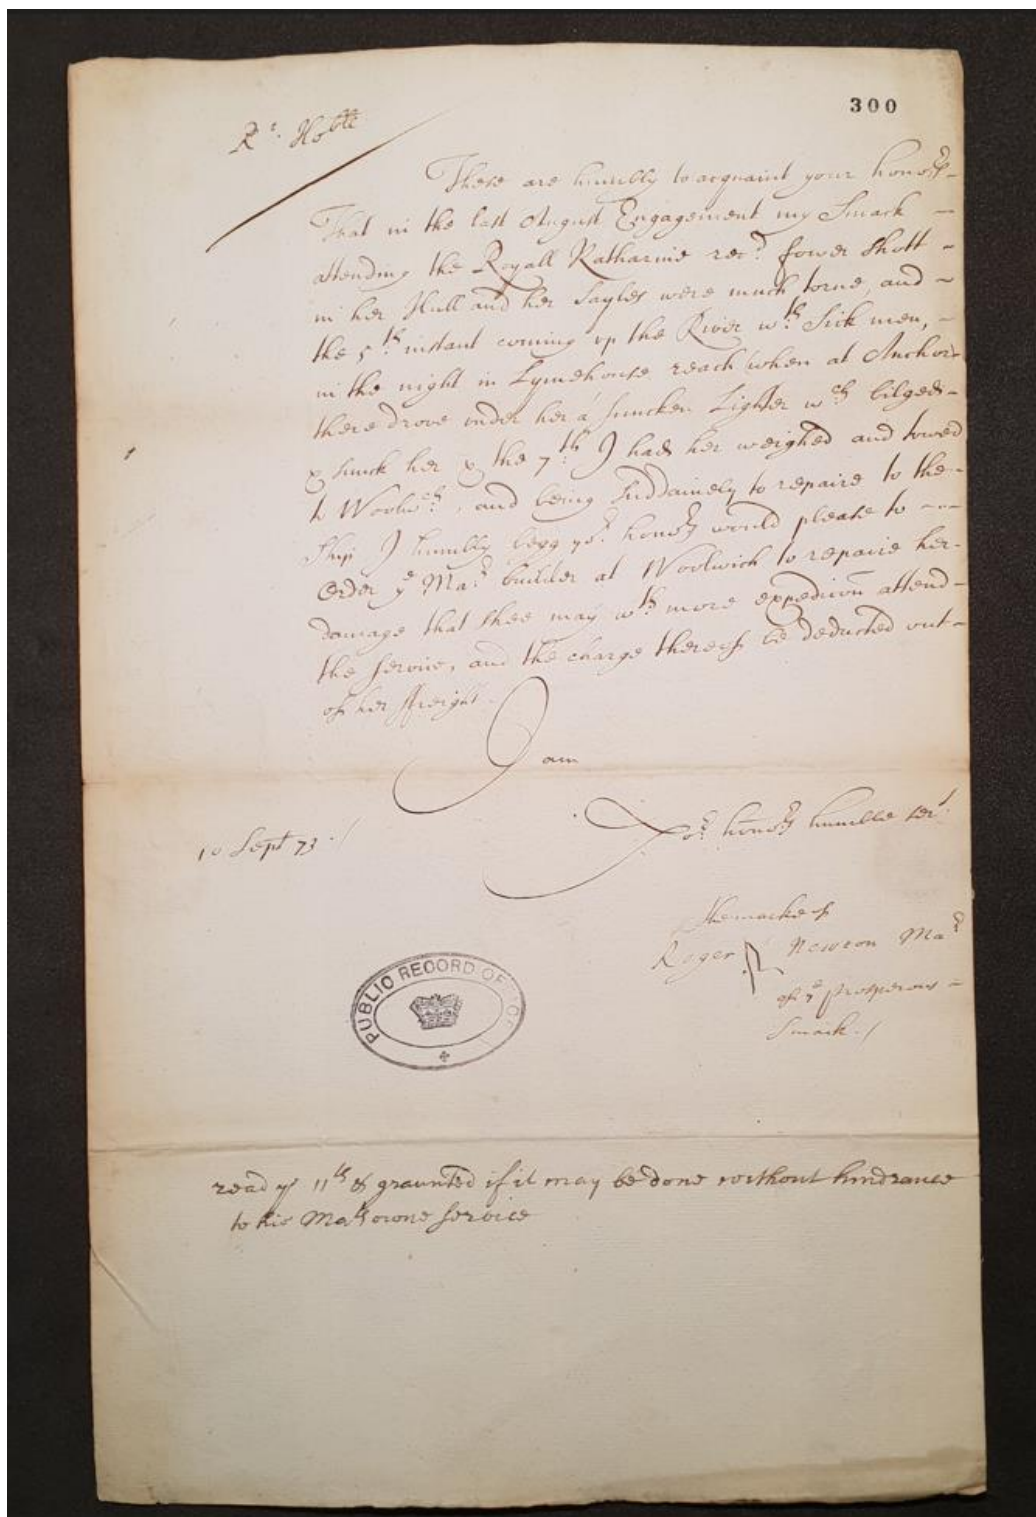 300
Rt. Hoble
These are humbly to acquaint your honors
That in the last August Engagement my Smack
attending the Royall Katharine recd. fower shott
in her Hull and her Sayles were much torne, and
the 5th instant coming up the River wth. Sick men,
in the night in Lymehouse reach (when at Anchor
there drove under her a suncken Lighter wch bilged
& sunck her & the 7th. I had her weighed and towed
to Woolwch., and being Suddainely to repaire to the
Ship I humbly begg yor. honors would please to
Order ye Mar. builder at Woolwich to repaire her
damage that shee may wth. more expedicon attend
the service, and the charge thereof be deducted out
of her ffreight.
I am
Yor. honors humble sert.
10 Sept 73 ./
The marke of
Roger R Newton Mar
of ye prosperous
Smack ./
PUBLIC RECORD OFFICE
read ye 11th & graunted if it may be done without hindrance
to his Mats owne service